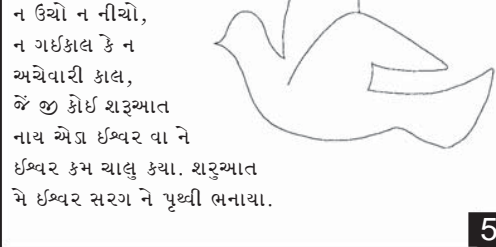 ન ઉચો ન નીચો,
ન ગઈકાલ કે ન
અચેવારી કાલ,
જેં જી કોઈ શરૂઆત
નાય એડા ઈશ્વર વા ને
ઈશ્વર કમ ચાલુ કયા. શરુઆત
મે ઈશ્વર સરગ ને પૃથ્વી ભનાયા.
5